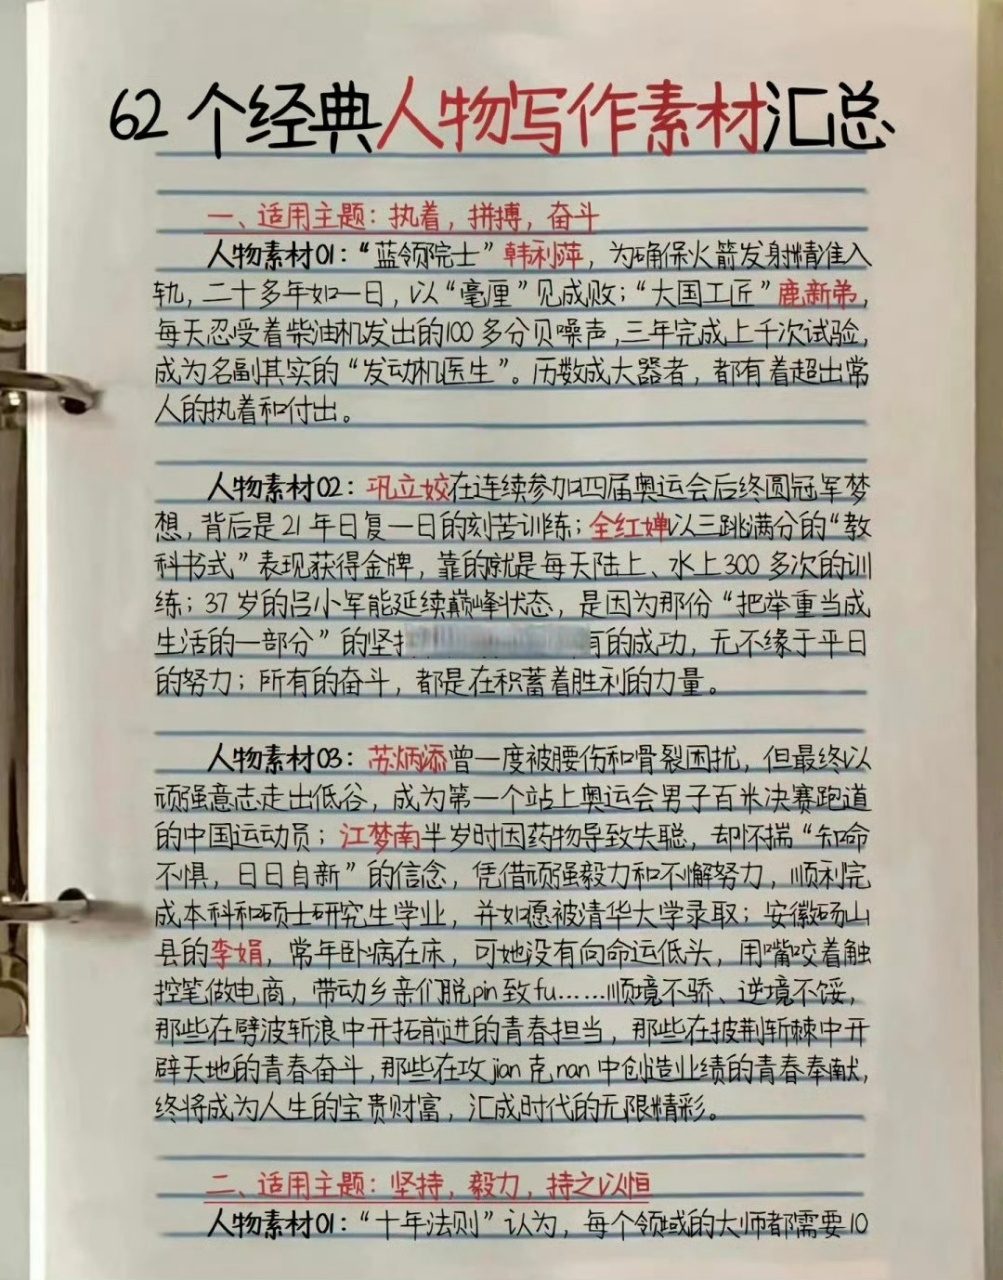 62个经典人物写作素材汇总
一、适用主题：执着，拼搏，奋斗
人物素材01：“蓝领院士”韩利萍，为确保火箭发射精准入
轨，二十多年如一日，以“毫厘”见成败；“大国工匠”鹿新弟，
每天忍受着柴油机发出的100多分贝噪声，三年完成上千次试验，
成为名副其实的“发动机医生”。历数成大器者，都有着超出常
人的执着和付出。
人物素材02：巩立姣在连续参加四届奥运会后终圆冠军梦
想，背后是21年日复一日的刻苦训练；全红婵以三跳满分的“教
科书式”表现获得金牌，靠的就是每天陆上、水上300多次的训
练；37岁的吕小军能延续巅峰状态，是因为那份“把举重当成
生活的一部分”的坚 有的成功，无不缘于平日
的努力；所有的奋斗，都是在积蓄着胜利的力量。
人物素材03：苏炳添曾一度被腰伤和骨裂困扰，但最终以
顽强意志走出低谷，成为第一个站上奥运会男子百米决赛跑道
的中国运动员；江梦南半岁时因药物导致失聪，却怀揣“知命
不惧，日日自新”的信念，凭借顽强毅力和不懈努力，顺利完
成本科和硕士研究生学业，并如愿被清华大学录取；安徽砀山
县的李娟，常年卧病在床，可她没有向命运低头，用嘴咬着触
控笔做电商，带动乡亲们脱pin致fu……顺境不骄、逆境不馁，
那些在劈波斩浪中开拓前进的青春担当，那些在披荆斩棘中开
辟天地的青春奋斗，那些在攻jian克nan中创造业绩的青春奉献，
终将成为人生的宝贵财富，汇成时代的无限精彩。
二、适用主题：坚持，毅力，持之以恒
人物素材01：“十年法则”认为，每个领域的大师都需要10